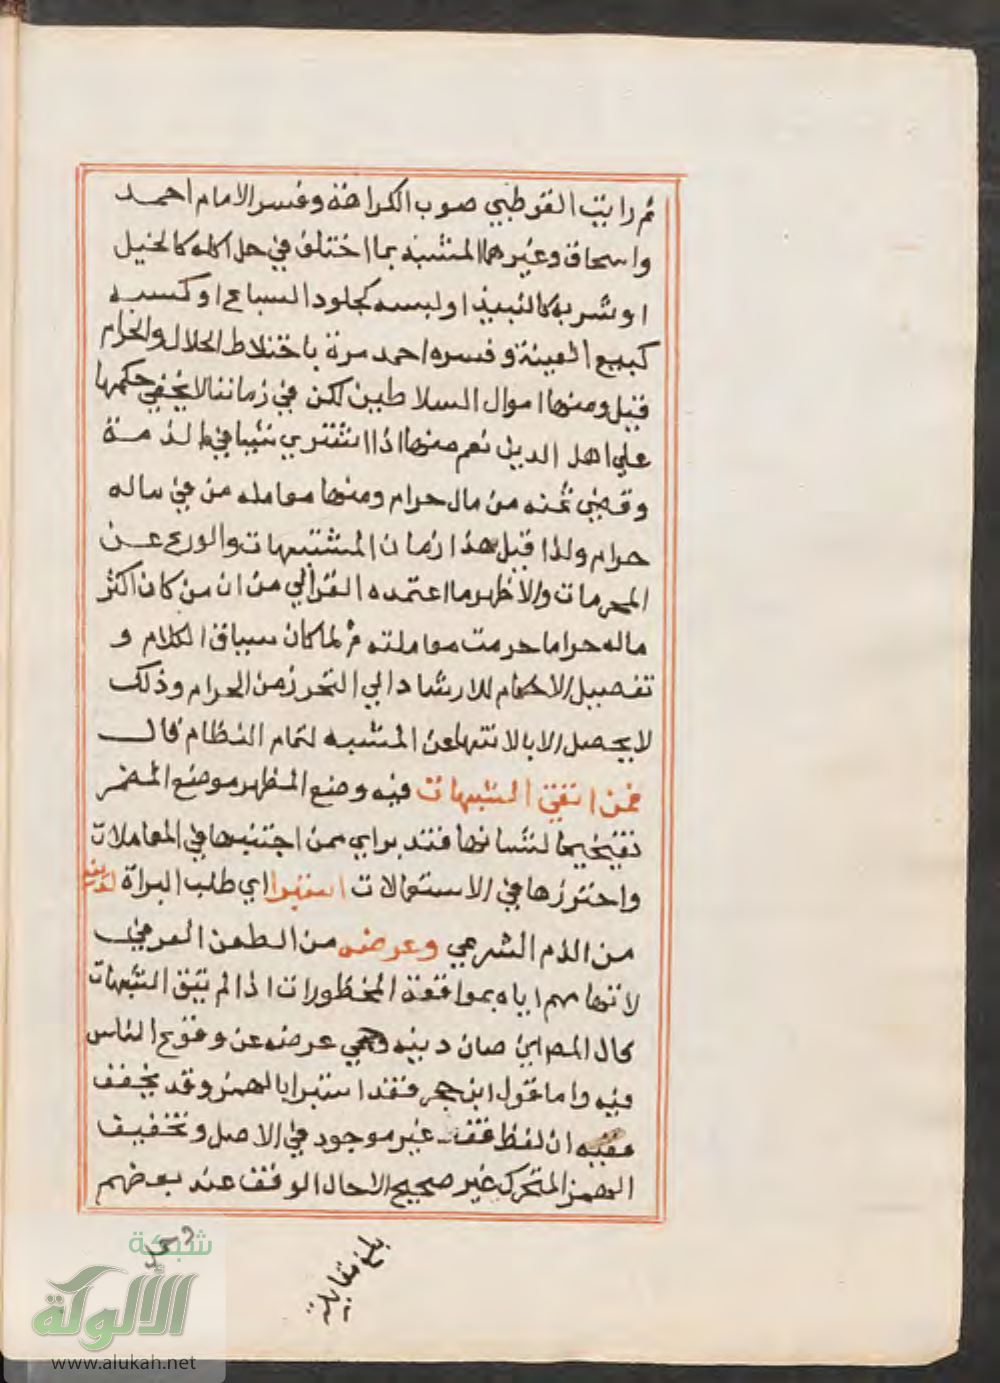 ثم رايت القرطبي صوب الكراهة وفسر الامام احمد
واسحاق وغيرهما المشتبه بما اختلف في حل اكله كالخيل
او شربه كالنبيذ او لبسه كجلود السباع او كسبه
كبيع العينة وفسره احمد مرة باختلاط الحلال والحرام
قيل ومنها اموال السلاطين لكن في زماننا لا يخفي حكمها
علي اهل الدين نعم منها اذا اشتري شيا في الذمة
وقضي ثمنه من مال حرام ومنها معاملة من في ماله
حرام ولذا قيل هذا زمان المشتبهات والورع عن
المحرمات والاظهر ما اعتمده الغزالي من ان من كان اكثر
ماله حراما حرمت معاملته ثم لما كان سياق الكلام و
تفصيل الاحكام للارشاد الي التحرز من الحرام وذلك
لا يحصل الا بالانتهاعن المشبه لتمام النظام قال
فمن اتقي الشبهات فيه وضع المظهر موضع المضمر
تفخيما لشانها فتدبر اي ممن اجتنبها في المعاملات
واحترزها في الاستعمالات استبرا اي طلب البراة لدينه
من الذم الشرعي وعرضه من الطعن العرفي
لاتهامهم اياه بمواقعة المحظورات اذا لم يتق الشبهات
كال المص اي صان دينه وحمي عرضه عن وقوع الناس
فيه واما قول ابن حجر فقد استبرا بالهمز وقد يخفف
ففيه ان لفظ فقد غير موجود في الاصل وتخفيف
الهمز المتحرك غير صحيح الا حال الوقف عند بعضهم
بلغ مقابلة
شبكة
الألوكة
www.alukah.net